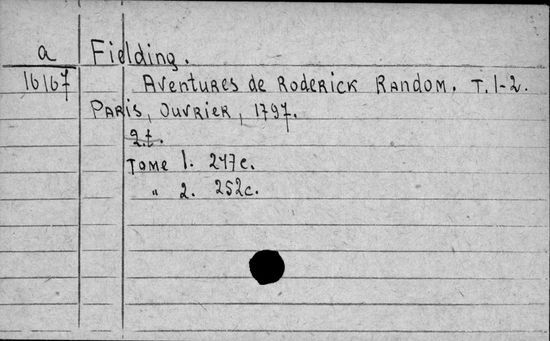 a Fielding.
16167 Aventures de Roderick Random. T. 1-2.
Paris, Ouvrier, 1797.
2 t.
Tome 1. 247 c.
" 2. 252 c.